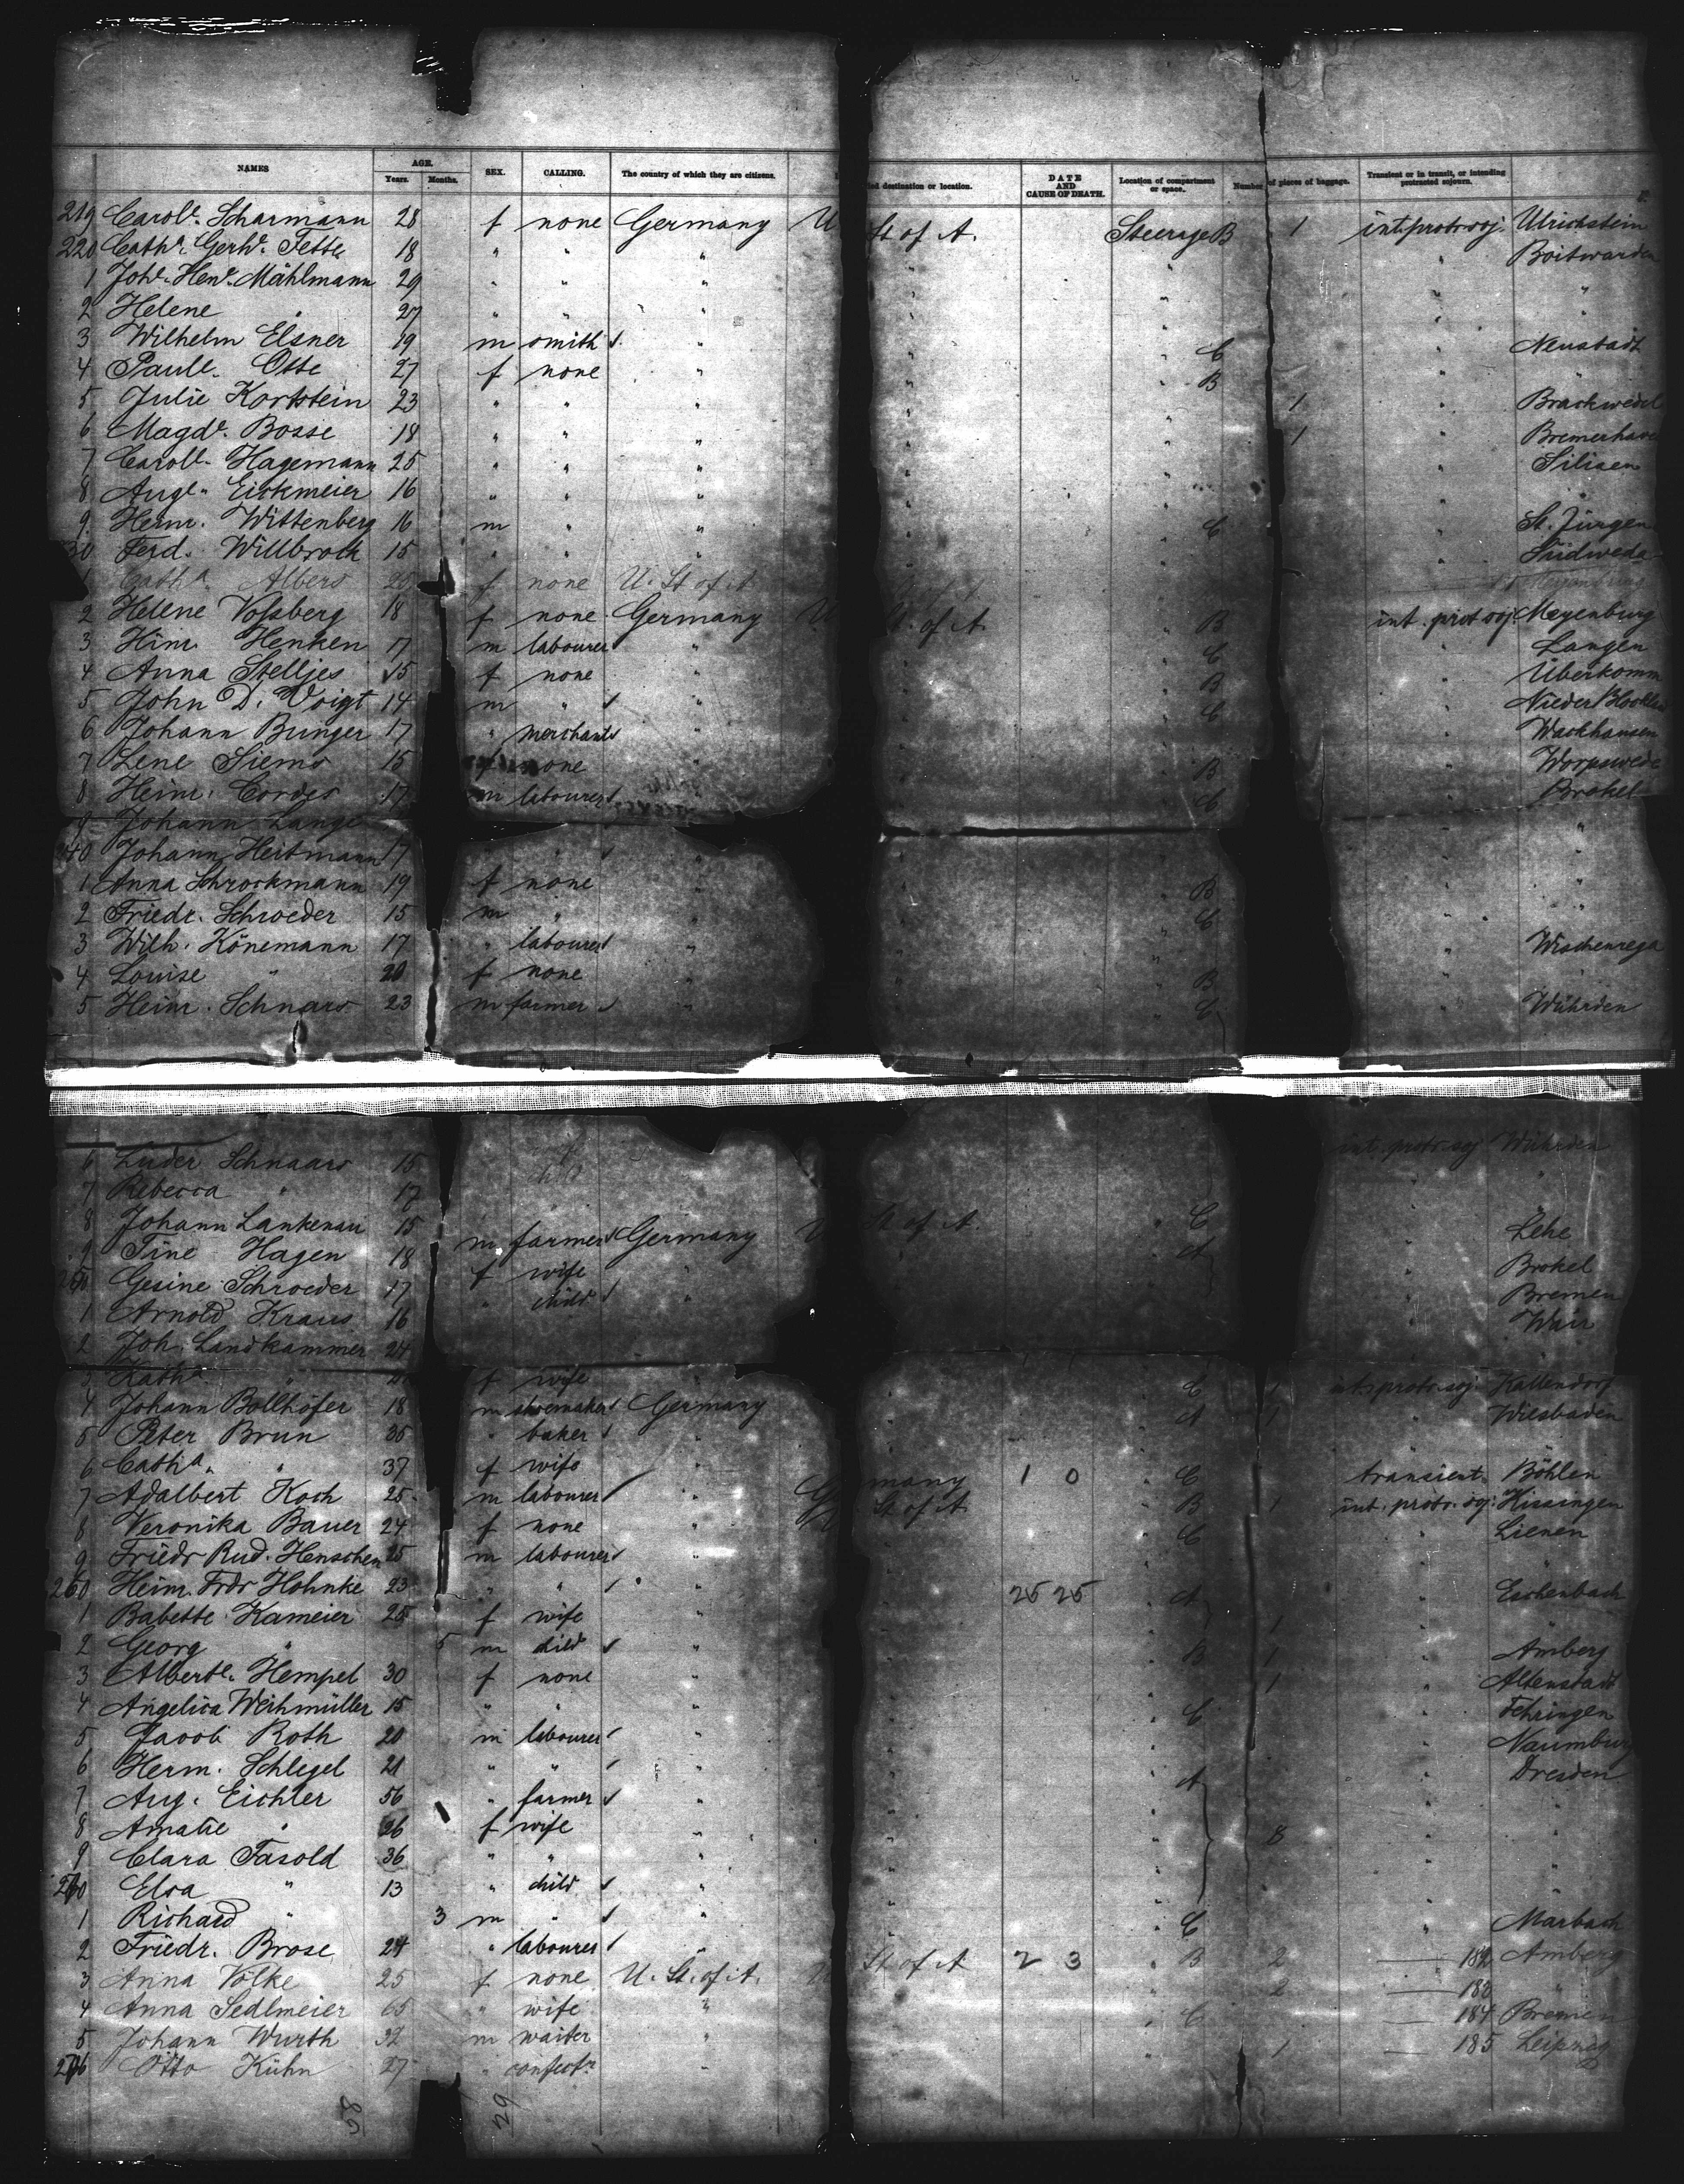 NAMES AGE. Years. Months. SEX. CALLING. The country of which they are citizens. ed destination or location. DATE AND CAUSE OF DEATH. Location of compartment or space. Number of pieces of baggage. Transient or in transit, or intending protracted sojourn.
219 Carole. Scharmann 28 f none Germany U St of A. Steerage B 1 int. protr. soj. Ulrichstein
220 Cathe. Gerhe. Fette 18 " " " " " " Boitwarden
1 Johe. Hene. Mählmann 29 " " " " " " "
2 Helene " 27 " " " " " " "
3 Wilhelm Elsner 19 m smith " " " C " Neustadt
4 Paule. Otte 27 f none " " " B " "
5 Julie Kortstein 23 " " " " " 1 " Brackwedel
6 Magde. Bosse 18 " " " " " 1 " Bremerhave
7 Carole. Hagemann 25 " " " " " " Silisen
8 Auge. Eickmeier 16 " " " " " " "
9 Heinr. Wittenberg 16 m " " " " C " St. Jürgen
30 Ferd. Willbrock 15 " " " " " " Südweda
1 Catha. Albers 25 f none U. St. of A. Meyenburg
2 Helene Vossberg 18 f none Germany U . of A. B int. prot. soj. Meyenburg
3 Hinr. Henken 17 m labourer " " " C " Langen
4 Anna Stelljes 15 f none " " " B " Überkomm
5 John D. Voigt 14 m " " " " C " Nieder
6 Johann Bunger 17 " merchant " " " " Wackhausen
7 Lene Siems 15 f none " " B " Worpswede
8 Heinr. Cordes 17 m labourer " C " Brokel
9 Johann Lange "
240 Johann Heitmann 17 " " "
1 Anna Schrockmann 19 f none " " B " "
2 Friedr. Schroeder 15 m " " " C " "
3 Wilh. Könemann 17 " labourer " " " " Wischenrega
4 Louise " 20 f none " " B " "
5 Heinr. Schnars 23 m farmer " " " C " Wührden
6 Luder Schnaars 15 int. protr. soj Wührden
7 Rebecca " 17 "
8 Johann Lankenau 15 m farmer Germany U St of A. C " Lehe
9 Tine Hagen 18 f wife " " A " Brokel
250 Gesine Schroeder 17 " child " " " Bremen
1 Arnold Kraus 16
2 Joh. Landkammer 24
3 Katha. " f wife C 1 int. protr. soj. Kallendorf
4 Johann Bollhöfer 18 m shoemaker Germany A 1 " Wiesbaden
5 Peter Brun 35 " baker "
6 Catha. " 37 f wife " G many 1 0 C transient. Böhlen
7 Adalbert Koch 25 m labourer " U St of A. B 1 int. protr. soj. Kissingen
8 Veronika Bauer 24 f none " " C " Lienen
9 Friedr Rud. Henschen 25 m labourer " " " "
260 Heinr. Frdr Hohnke 23 " " " " 25 25 A " Eschenbach
1 Babette Kameier 25 f wife " " 1 " "
2 Georg " 5 m child " " B 1 " Amberg
3 Alberte. Hempel 30 f none " " 1 " Altenstadt
4 Angelica Weihmüller 15 " " " " C " Fehringen
5 Jacob Roth 20 m labourer " " " " Naumburg
6 Herm. Schlegel 21 " " " " A " Dresden
7 Aug. Eichler 56 " farmer " " " " "
8 Amalie " 26 f wife " " " 8 " "
9 Clara Fasold 36 " " " " " " "
270 Elsa " 13 " child " " " " "
1 Richard " 3 m " " " C " Marbach
2 Friedr. Brose 24 " labourer " St of A 2 3 B 2 182 Amberg
3 Anna Völke 25 f none U. St. of A. U 2 183 "
4 Anna Sedlmeier 65 " wife " C 184 Bremen
5 Johann Wurth 32 m waiter " 1 185 Leipzig
276 Otto Kühn 27 " confectr "
29